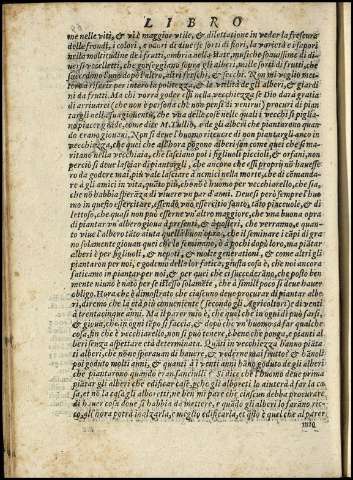 LIBRO
me nelle viti, & vi è maggior vtile, & dilettatione in veder la frescura
delle frondi, i colori, e odori di diuerse sorti di fiori, la varietà e i sapori
nella moltitudine de i frutti, ombria nella state, musiche soauissime di di-
uersi vccelletti, che gorgheggiano sopra gli alberi, molte sorti di frutti, che
succedono l'uno dopò l'altro, altri freschi, & secchi. Non mi voglio met-
ter a riferir per intero la politezza, & la vtilità de gli alberi, & giardi
ni da frutti. Ma chi vorrà goder essi nella vecchiezza se Dio darà gratia
di arriuarci (che non è persona che non pensi di venirui) procuri di pian
targli nella sua giouentù, che vna delle cose nelle quali i vecchi si piglia-
no piacer
do erano giouani. Non si deue l'huomo ritirare di non piantargli anco in
vecchiezza, che quei che all'hora pógono alberi son come quei che si ma-
ritano nella vecchiaia, che lasciano poi i figliuoli piccioli, & orfani, non
però si deue lasciar di piantargli, che anche che essi proprij nõ hauesse-
ro da godere mai, più vale lasciare à nemici nella morte, che di comanda-
re à gli amici in vita, poiche non è huomo per vecchiarello, che sia,
che nõ habbia speranza di viuere vn par d'anni. Deuesi però sempre l'huo
mo in questo essercitare, essendo vno essercitio santo, tãto piaceuole, & di
lettoso, che quasi non può esserne vn'altro maggiore, che vna buona opra
di piantar vn'albero gioua à presenti, & à posteri, che verranno, & quan-
to viue l'albero tãto aiuta quella buona opra, che il seminare i cãpi di gra
no solamente giouan quei che lo seminano, ò à pochi dopò loro, ma piãtar
alberi è per figliuoli, & nepoti, & molte generationi, & come altri gli
piantaron per noi, e godemo della lor fatica, giusta cosa è, che noi ancora
faticamo in piantar per noi, & per quei che ci succederãno, che posto ben
mente niuno è nato per se istesso solamẽte, che à simili poco si deue hauer
obligo. Hora che è dimostrato che ciascuno deue procurar di piantar albe
ri, diremo che la età è conueniente (secondo gli Agricoltori) è di venti
à trentacinque anni. Ma il parer mio è, che quel che in ogni dì può farsi,
& gioua, che in ogni tépo si faccia, & dopò che vn'huomo sà far qualche
cosa, sin che è vecchiarello, non si può tenere, è bene che ponga, e pianti al
beri senza aspettare età determinata. Quãti in vecchiezza hãno piãta
ti alberi, che nõ ne sperauan di hauere, & vederne mai frutto? & hãnoli
poi goduto molti anni, & quanti à i venti anni hãno goduto de gli alberi
che piantarono quando eran fanciulli? Si dice che l'huomo deue prima
piãtar gli alberi che edificar case, pche gli alboreti lo aiuterà à far la co-
sa, et nõ la casa gli alboreti, ne ben mi pare che ciascun debba procurare,
di hauer cosa doue si habbia da mettere, e quãdo gli alberi lo farãno ric-
co, all'hora potrà inalzarla, e meglio edificarla, et q̃sto è quel che al parer
mio